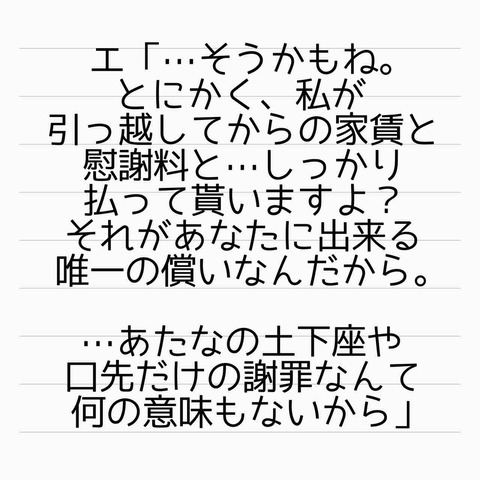 エ「…そうかもね。
とにかく、私が
引っ越してからの家賃と
慰謝料と…しっかり
払って貰いますよ？
それがあなたに出来る
唯一の償いなんだから。
…あたなの土下座や
口先だけの謝罪なんて
何の意味もないから」